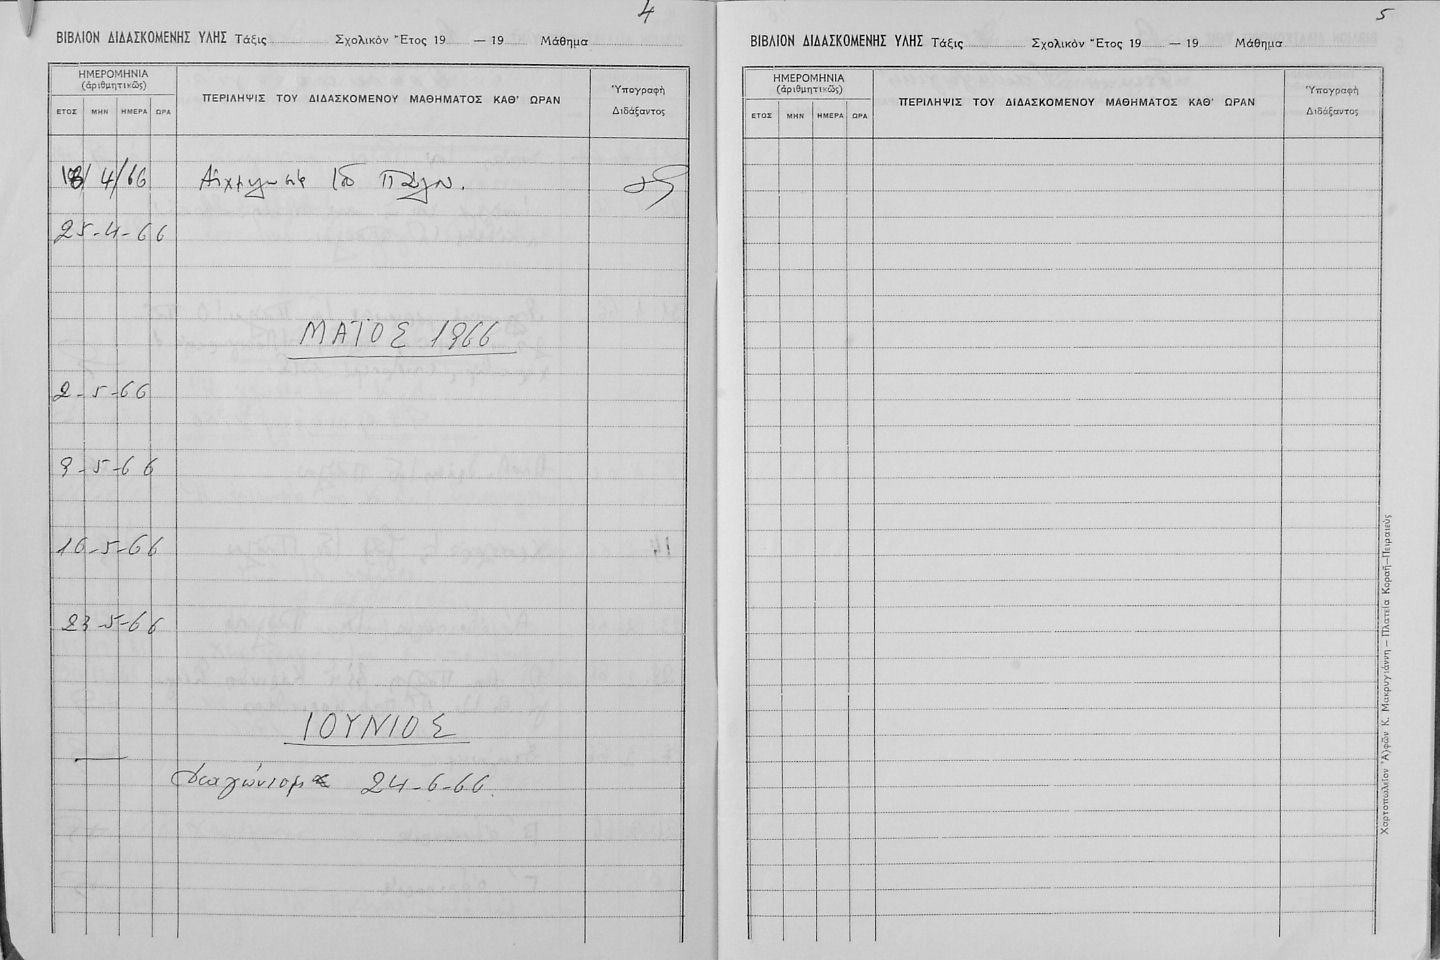 4
ΒΙΒΛΙΟΝ ΔΙΔΑΣΚΟΜΕΝΗΣ ΥΛΗΣ Τάξις Σχολικὸν Ἔτος 19 — 19 Μάθημα
ΗΜΕΡΟΜΗΝΙΑ
(ἀριθμητικῶς)
ΕΤΟΣ ΜΗΝ ΗΜΕΡΑ ΩΡΑ
ΠΕΡΙΛΗΨΙΣ ΤΟΥ ΔΙΔΑΣΚΟΜΕΝΟΥ ΜΑΘΗΜΑΤΟΣ ΚΑΘ' ΩΡΑΝ
Ὑπογραφὴ
Διδάξαντος
4/66
25-4-66
ΜΑΪΟΣ 1966
2-5-66
9-5-66
16-5-66
23-5-66
ΙΟΥΝΙΟΣ
Διαγώνισμα 24-6-66.
5
ΒΙΒΛΙΟΝ ΔΙΔΑΣΚΟΜΕΝΗΣ ΥΛΗΣ Τάξις Σχολικὸν Ἔτος 19 — 19 Μάθημα
ΗΜΕΡΟΜΗΝΙΑ
(ἀριθμητικῶς)
ΕΤΟΣ ΜΗΝ ΗΜΕΡΑ ΩΡΑ
ΠΕΡΙΛΗΨΙΣ ΤΟΥ ΔΙΔΑΣΚΟΜΕΝΟΥ ΜΑΘΗΜΑΤΟΣ ΚΑΘ' ΩΡΑΝ
Ὑπογραφὴ
Διδάξαντος
Χαρτοπωλεῖον Ἀ)φῶν Κ. Μακρυγιάννη — Πλατεία Κοραῆ—Πειραιεὺς